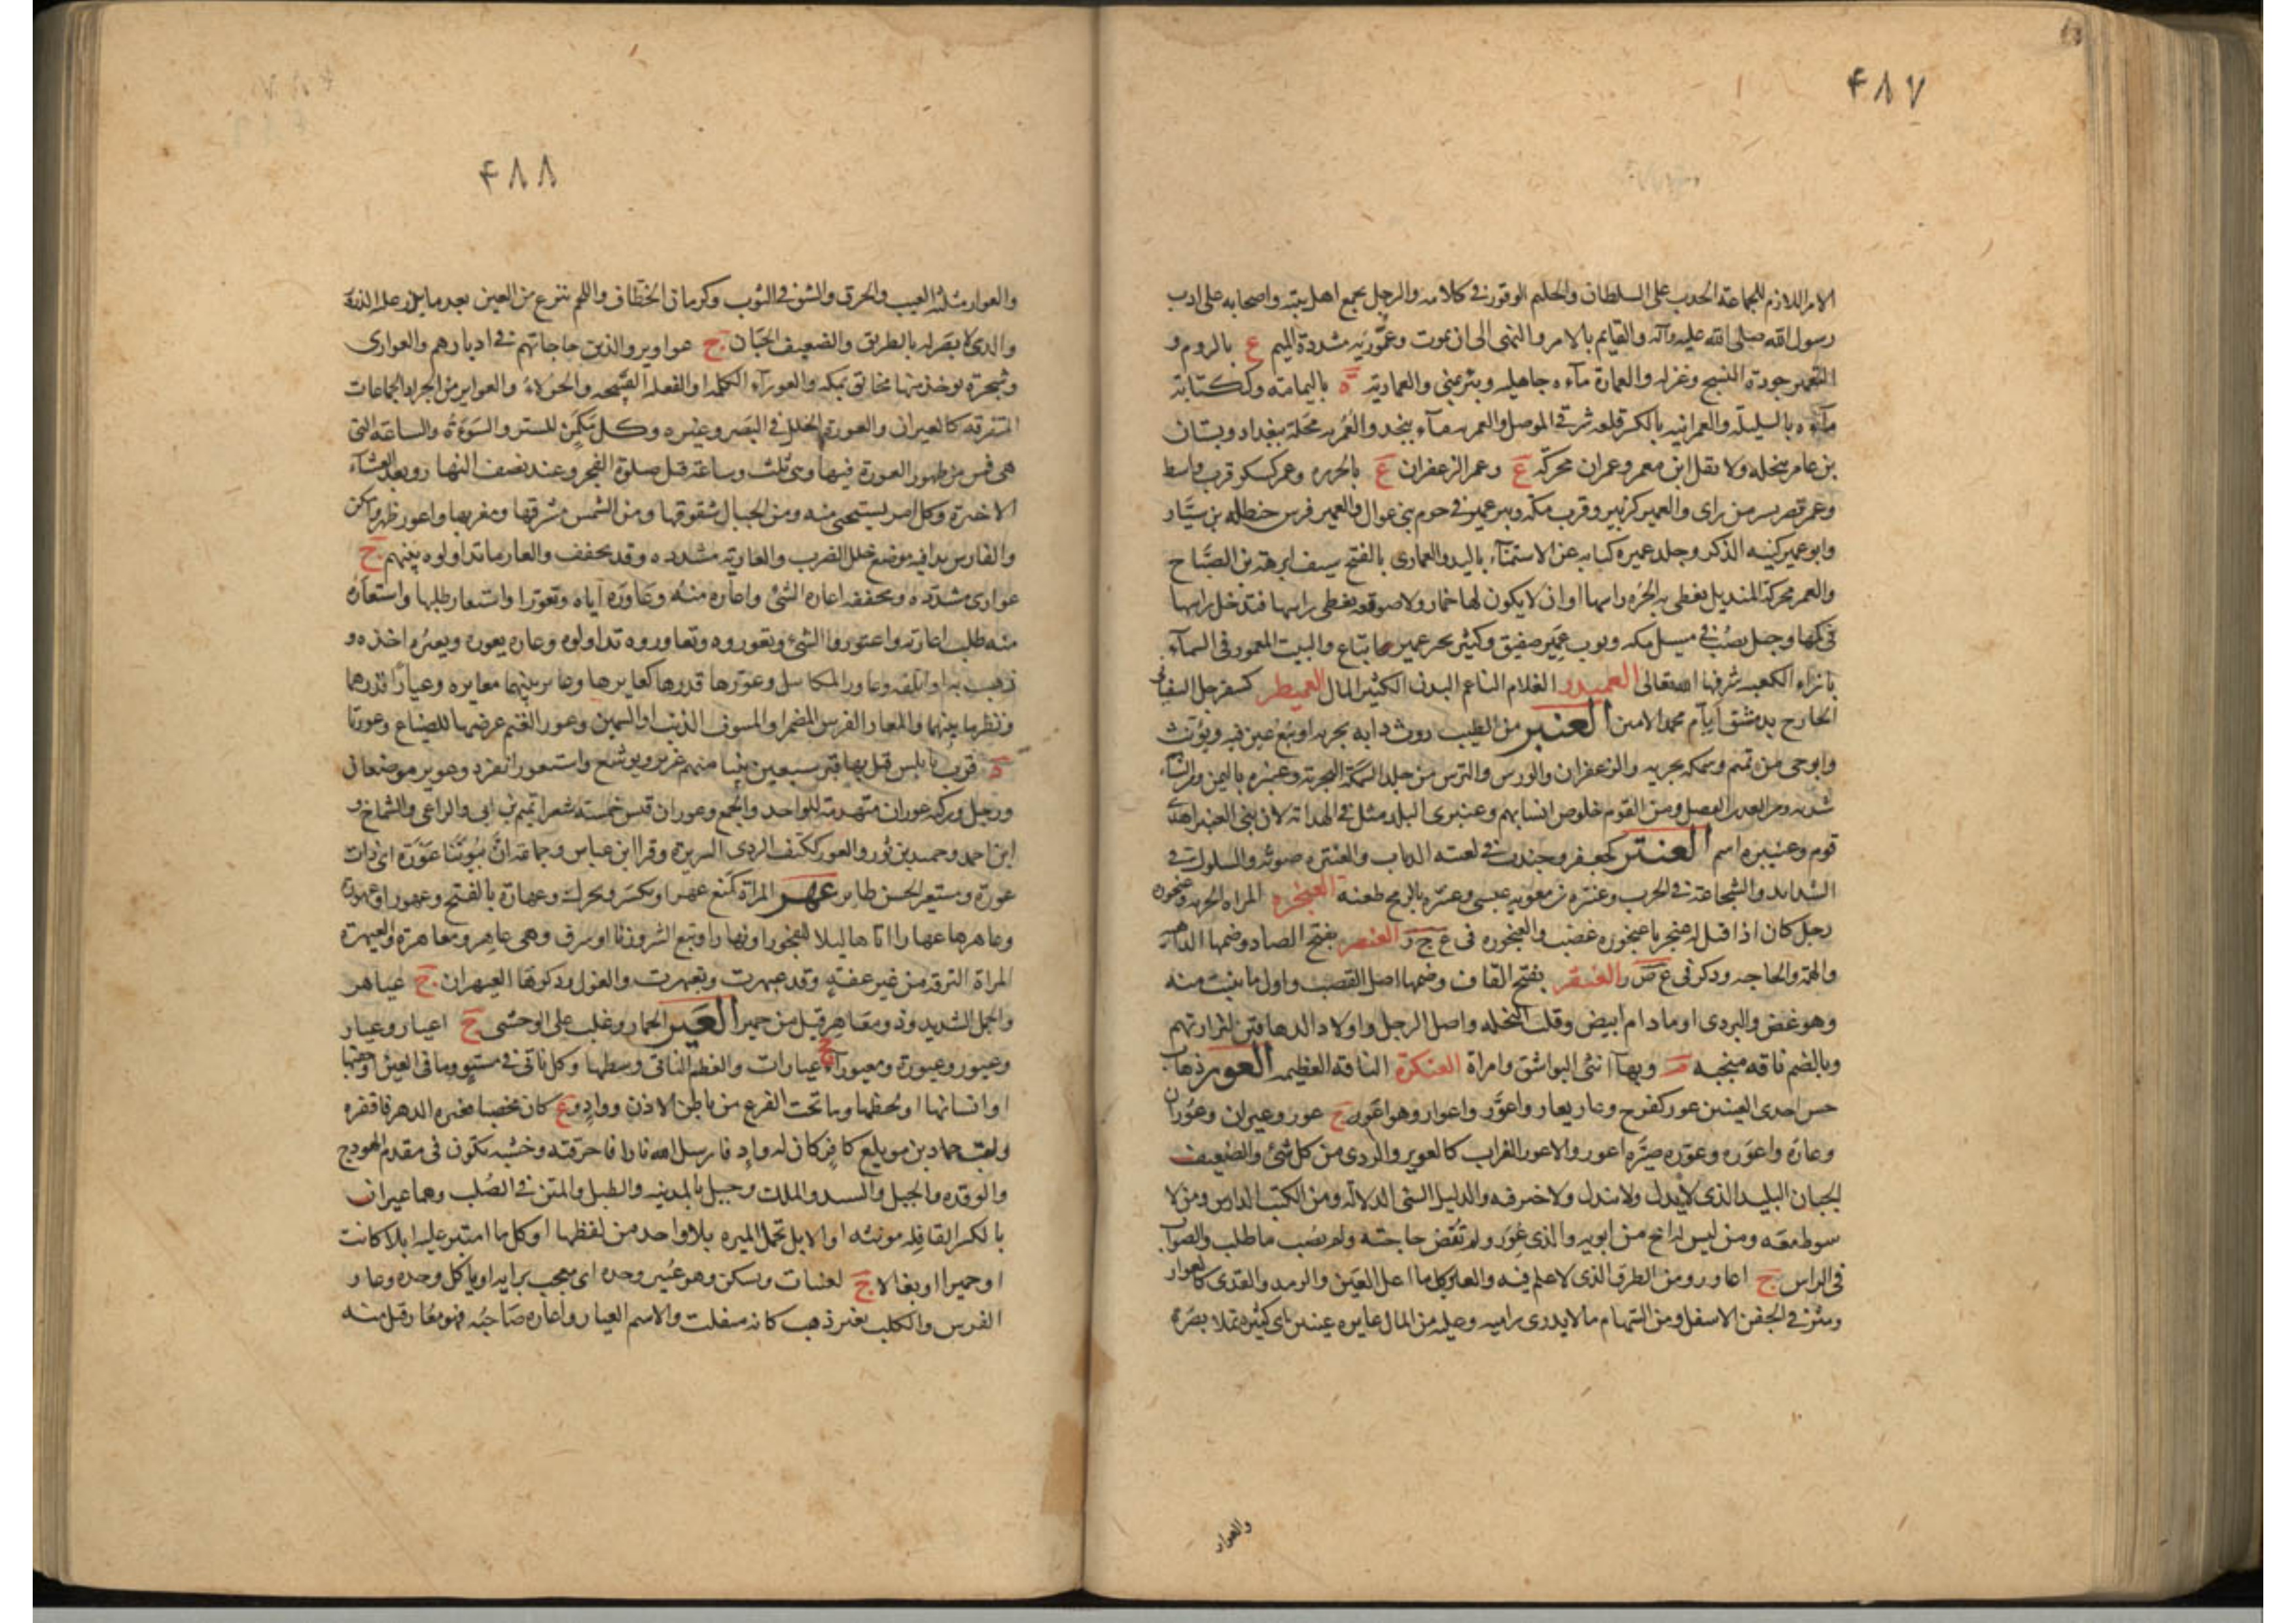 ۴۸۷
الامر اللازم للجماعة الحدب على السلطان والحليم الوقور فى كلامه والرجل يجمع اهل بيته واصحابه على ادب
رسول الله صلى الله عليه وآله والقايم بالامر والنهى الى ان يموت وعمّوريه مشددة الميم ع بالروم و
التعمير جودة النسج وغزله والعمارة ماءه جاهليه وبئر بمنى والعمادية ة باليمامة وككتابة
ماءه بالسليلة والعمرانيه بالكسر قلعه شرقى الموصل والعمريه ماء بنجد والعُمريه محلة ببغداد وبستان
بن عامر بنخله ولا تقل ابن معمر وعمران محركه ع وعمر الزعفران ع بالجزيره وعمر كسكر قرب واسط
وعمر قصر بسر من راى والعمير كزبير وقرب مكه وبير عمير فى حوم بنى عوال والعمير فرس حنظله بن سيّار
وابو عمير كنيه الذكر وجلد عميره كنايه عن الاستمناء باليد والعمارى بالفتح سيف ابرهة بن الصبّاح
والعمر محركة المنديل يغطى به الحُره راسها او ان لا يكون لها خمار ولا صوقعه تغطى راسها فتدخل راسها
فى كمها وجبل يصُبّ فى مسيل مكه وثوب عمير صفيق وكثير بحير عمير اتباع والبيت المعمور فى السمآء
بازاء الكعبه شرفها الله تعالى العميدر الغلام الناعم البدن الكثير المال العميطر كسفرجل السفيانى
الخارج بدمشق ايآم محمد الامين العنبر من الطيب روث دابه بحريه او نبع عين فيه ويؤنث
وابو حى من تميم وسمكه بحريه والزعفران والورس والترس من جلد السمكة البحرية وعنبره باليمن ومن الشتاء
شدته ومن القدر البصل ومن القوم خلوص انسابهم وعنبرى البلد مثل فى الهداية لان بنى العنبر اهدى
قوم وعنيبره اسم العنتر كجعفر وجندب فى لغته الذباب والعنتره صوته والسلوك فى
الشدايد والشجاعة فى الحرب وعنتره بن معويه عبسى وعنتره بالرمح طعنه العنجره المراه الجريه وعنجوره
رجل كان اذا قيل له عنجر يا عنجوره غضب والعنجوره فى ع ج ر العنصر بفتح الصاد وضمها الداهيه
والهمه والحاجه وذكر فى ع ص ر العنقر بفتح القاف وضمها اصل القصب واول ما ينبت منه
وهو غض والبردى او مادام ابيض وقلب النخله واصل الرجل واولاد الدهاقين لترارتهم
وبالضم ناقه منجبه م وبهاآ انثى البواشق وامراة العنكرة الناقه العظيمه العور ذهاب
حس احدى العينين عور كفرح وعار يعار واعوّر واعوار وهو اعور ج عور وعيران وعُوران
وعارَه واعوَره وعوّره صيّره اعور والاعور الغراب كالعوير والردى من كل شئ والضعيف
الجبان البليد الذى لا يدل ولا يندل ولا خير فيه والدليل السئ الدلالة ومن الكتب الدارس ومن لا
سوط معه ومن ليس له اخ من ابويه والذى عُوّر ولم تُقض حاجته ولم يصُب ما طلب والصواب
فى الراس ج اعاور ومن الطرق الذى لا علم فيه والعاير كل ما اعل العين والرمد والقذى كالعوار
وبثر فى الجفن الاسفل ومن السهام ما لا يدرى راميه وعليه من المال عايره عينين اى كثيره تملا بصَرَه
والعوار
۴۸۸
والعوار مثلثة العيب والخرق والشق فى الثوب وكرمان الخطّاف واللحم ننزع من العين بعد ما يذر عليه الذرة
والذى لا بصَر له بالطريق والضعيف الجبَان ج عواوير والذين حاجاتهم فى ادبارهم والعوارى
وشجرة يوخذ منها مخانق بمكه والعورآء الكلمه او الفعله القبيحه والحولاءُ والعواير من الجراد الجماعات
المتفرقه كالعيران والعورة الخلل فى الثغر وغيره وكل مكمَن للستر والسَوءَة والساعة التى
هى قمن من ظهور العورة فيها وهى ثلث وساعة قبل صلوة الفجر وعند نصف النهار وبعد العشآء
الاخرة وكل امر يستحيى منه ومن الجبال شقوقها ومن الشمس مشرقها ومغربها واعور ظهر وامكن
والفارس بدا فيه موضع خلل للضرب والعاريّه مشدده وقد تخفف والعارة ما تداولوه بينهم ج
عوارى مشدّده ومخففه اعاره الشئ واعاره منه وعاوَره اياه وتعوّر واستعار طلبها واستعارَه
منه طلب اعارته واعتوروا الشئ وتعوروه وتعاوروه تداولوه وعاره يعوره ويعيره اخذه و
ذهب به او اتلفه وعاور المكاييل وعوّرها قدرها كعايرها وعاير بينهما معايره وعيارًا قدرهما
ونظر ما بينهما والمعار الفرس المضمر او المنتوف الذنب او السمين وعور الغنم عرضها للضياع وعورتا
ة قرب نابلس قيل بها قبر سبعين نبيا منهم عزير ويوشع واستعور انفرد وعوير موضعان
ورجل وركيه عوران متهدمة للواحد والجمع وعوران قيس خمسة شعرا تميم بن ابى والراعى والشماخ و
ابن احمر وحميد بن ثور والعور ككتف الردى السريرة وقرا ابن عباس وجماعة انّ بيُوتَنا عَوِرَة اى ذات
عورة ومستعير الحسن طاير عهر المراة كمنع عهرا ويكسر ويحرك وعهارة بالفتح وعهورا وعهورة
وعاهرها عهارا اتاها ليلا للفجور او نهارا او تبع الشر وزنا او سرق وهى عاهر ومعاهرة والعيهرة
المراة النزقه من غير عفة وقد عيهرت وتعيهرت والغول وذكرها العيهران ج عياهر
والجمل الشديد وذو معاهر قيل من حمير العَير الحمار وغلب على الوحشى ج اعيار وعيار
وعيور وعيورة ومعيورآء جج عيارات والعظم الناتى وسطها وكل ناتى فى مستوٍ وماقى العين او جفنها
او انسانها او لحظها وما تحت الفرع من باطن الاذن ووادٍ و ع كان مخصبا فغيره الدهر فاقفره
ولقب حماد بن مويلع كافر كان له وادٍ فارسل الله نارا فاحرقته وخشبه تكون فى مقدم الهودج
والوتد والجبل والسيد والملك وجبل بالمدينه والطبل والمتن فى الصُلب وهما عيران
بالكسر القافله مونثه او الابل تحمل الميره بلا واحد من لفظها او كل ما امتير عليه ابلا كانت
او حميرا او بغالا ج لعيرات ويسكن وهو عُيير وحده اى معجب برايه او ياكل وحده وعار
الفرس والكلب يعير ذهب كانه منفلت والاسم العيار واعاره صَاحِبُه فهو مُعار وقيل منه